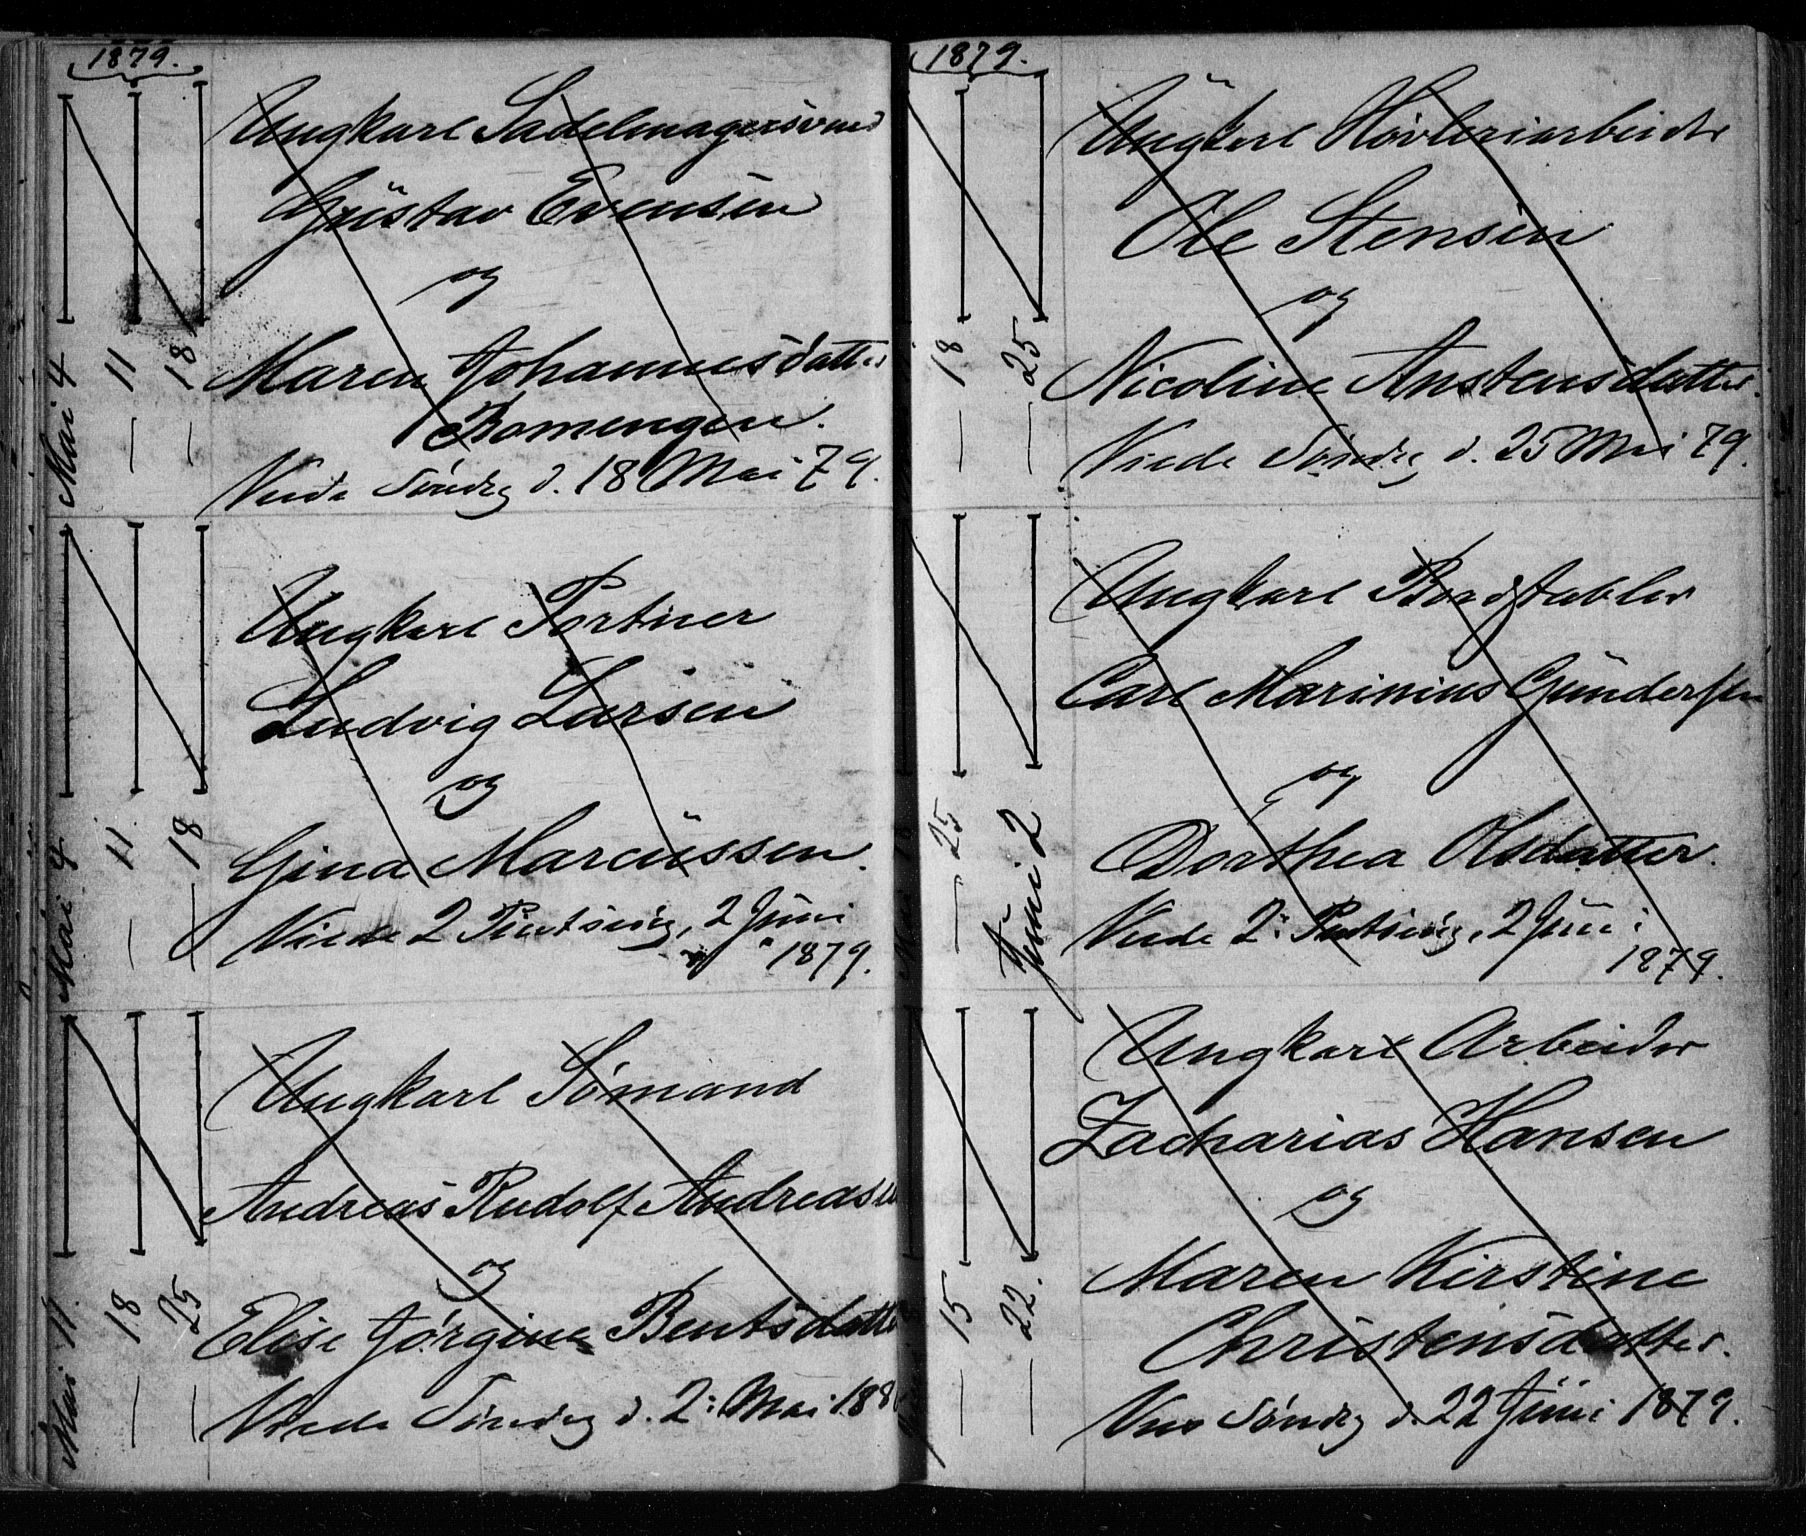 1879.
Mai 4 — 11 — 18
Ungkarl Sadelmagersvend
Gustav Evensen
og
Maren Johannesdatter
Romengen.
Viede Søndag d. 18 Mai 79.
Mai 4 — 11 — 18
Ungkarl Portner
Ludvig Larsen
og
Gina Marcussen.
Viede 2 Pintsedg, 2 Juni
1879.
Mai 11. — 18 — 25
Ungkarl Sømand
Andreas Rudolf Andreasen
og
Elise Jørgine Bentsdatter
Viede Søndag d. 2: Mai 188
1879.
— 18 — 25
Ungkarl Høvleriarbeider
Ole Stensen
og
Nicoline Anstensdatter.
Viede Søndag d. 25 Mai 79.
— 25 Juni 2
Ungkarl Bordstabler
Carl Marinius Gundersen
og
Dorthea Olsdatter.
Viede 2: Pintsedg, 2 Juni
1879.
— 15 — 22.
Ungkarl Arbeider
Zacharias Hansen
og
Maren Kirstine
Christensdatter.
Viet Søndag d. 22 Juni 1879.